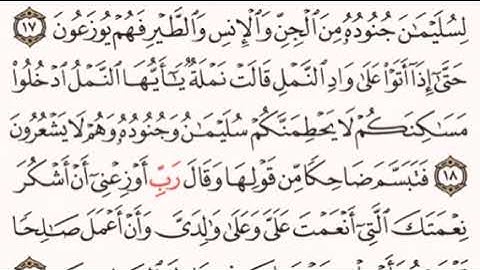 لِسُلَيْمَـٰنَ جُنُودُهُۥ مِنَ ٱلْجِنِّ وَٱلْإِنسِ وَٱلطَّيْرِ فَهُمْ يُوزَعُونَ ١٧
حَتَّىٰٓ إِذَآ أَتَوْا۟ عَلَىٰ وَادِ ٱلنَّمْلِ قَالَتْ نَمْلَةٌ يَـٰٓأَيُّهَا ٱلنَّمْلُ ٱدْخُلُوا۟
مَسَـٰكِنَكُمْ لَا يَحْطِمَنَّكُمْ سُلَيْمَـٰنُ وَجُنُودُهُۥ وَهُمْ لَا يَشْعُرُونَ
١٨ فَتَبَسَّمَ ضَاحِكًا مِّن قَوْلِهَا وَقَالَ رَبِّ أَوْزِعْنِىٓ أَنْ أَشْكُرَ
نِعْمَتَكَ ٱلَّتِىٓ أَنْعَمْتَ عَلَىَّ وَعَلَىٰ وَٰلِدَىَّ وَأَنْ أَعْمَلَ صَـٰلِحًا